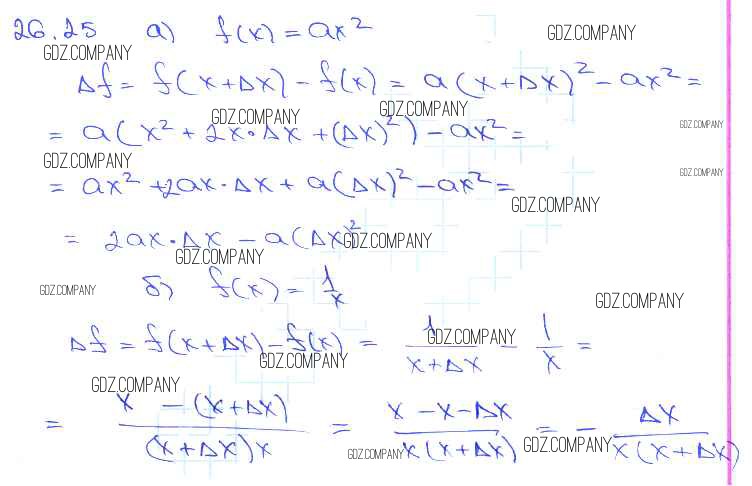 26.25 а) f(x) = ax²
GDZ.COMPANY GDZ.COMPANY
Δf = f(x+Δx) – f(x) = a(x+Δx)² – ax² =
GDZ.COMPANY GDZ.COMPANY
= a(x² + 2x·Δx + (Δx)²) – ax² = GDZ.COMPANY
GDZ.COMPANY GDZ.COMPANY
= ax² + 2ax·Δx + a(Δx)² – ax² =
GDZ.COMPANY
= 2ax·Δx – a(Δx)² GDZ.COMPANY
GDZ.COMPANY
GDZ.COMPANY б) f(x) = 1/x GDZ.COMPANY
Δf = f(x+Δx) – f(x) = 1/(x+Δx) GDZ.COMPANY 1/x =
GDZ.COMPANY
GDZ.COMPANY
= (x – (x+Δx))/((x+Δx)x) = (x – x – Δx)/(x(x+Δx)) = – Δx/(x(x+Δx))
GDZ.COMPANY GDZ.COMPANY